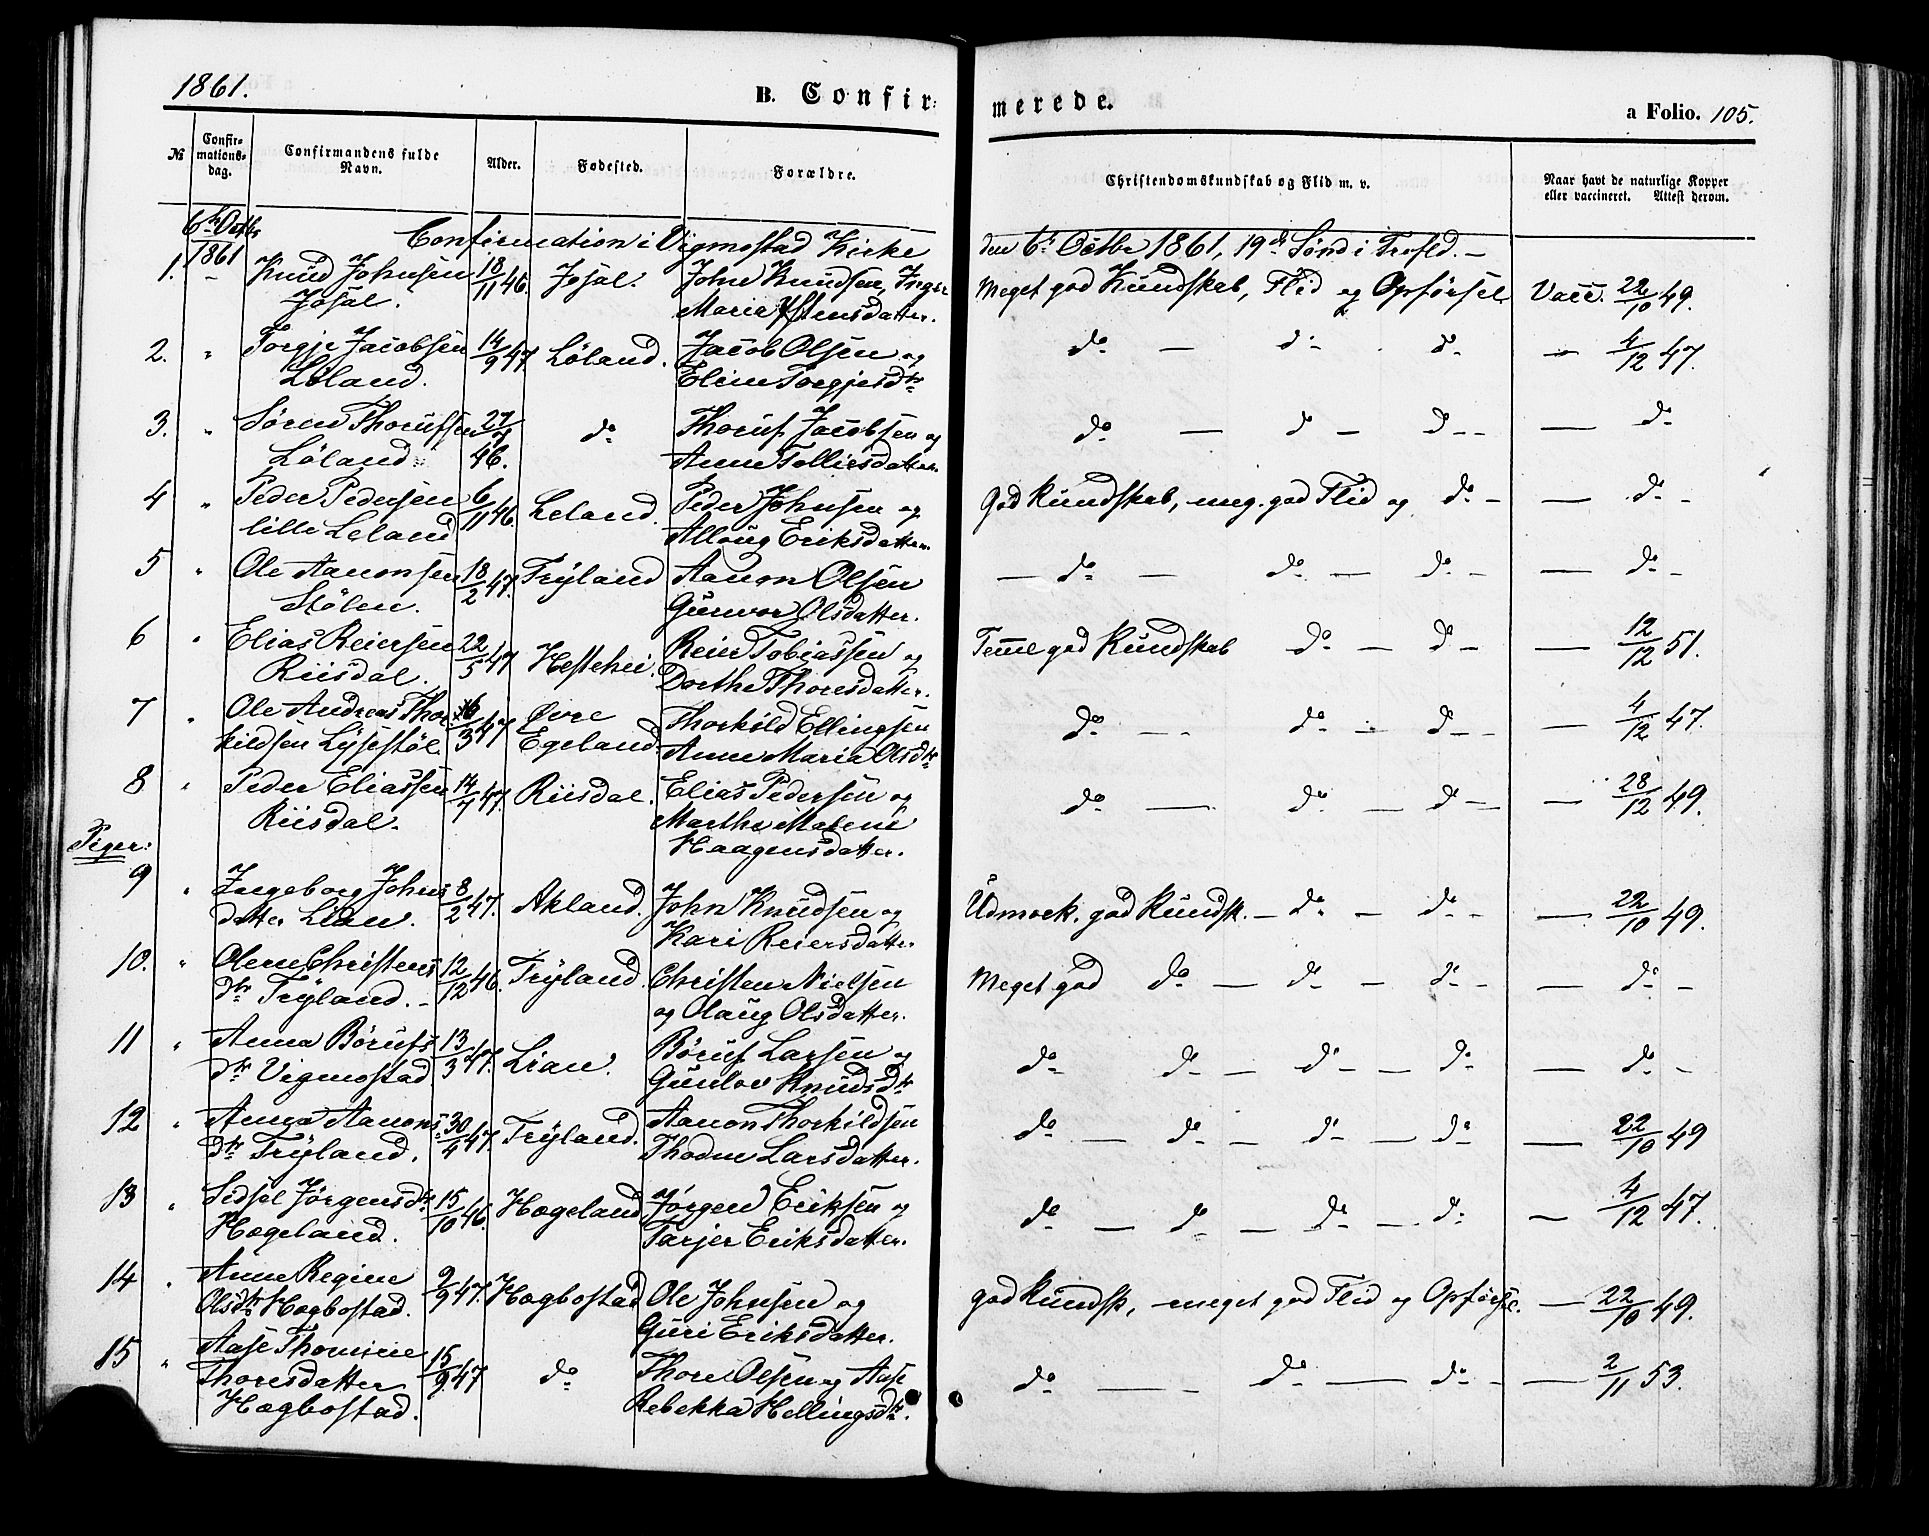 1861.
B. Confir=
merede.
a Folio. 105.
№
Confir=
mations=
dag.
Confirmandens fulde
Navn.
Alder.
Fødested.
Forældre.
Christendomskundskab og Flid m. v.
Naar havt de naturlige Kopper
eller vaccineret. Attest derom.
6te Octbr
1861
Confirmation i Vigmostad Kirke
den 6te Octbr 1861, 19de Sønd i Trefld. –
1. – Knud Johnsen 18/11 46. Josal. John Knudsen, Inger Meget god Kundskab, Flid og Opførsel Vacc. 22/10 49.
Josal. Maria Ostensdatter.
2. " Torgje Jacobsen 14/9 47 Løland. Jacob Olsen og do – do – do – 4/12 47.
Løland. Eline Torgjesdtr
3. " Søren Thorufsen 27/ Thoruf Jacobsen og do – do – do – – do
Løland 46. do Anne Tolliesdatter
4 " Peder Pedersen 6/11 46. Leland. Peder Johnsen og God Kundskab, meg. god Flid og do – – do –
lille Leland Allaug Eriksdatter
5 " Ole Aanonsen 18/2 47. Trÿland Aanon Olsen – do – do – do – – do –
Stølen. Gunvor Olsdatter.
6 " Elias Reiersen 22/5 47 Hestehei. Reier Tobiassen og Temel god Kundskab do – do – – 12/12 51.
Riisdal. Dorthe Thoresdatter.
7 " Ole Andreas Thor= 16/3 47 Øvre Thorkild Ellingsen do – do – do – – 4/12 47.
kildsen Lÿsestøl Egeland. Anne Maria Olsdtr
8 " Peder Eliassen 14/7 47. Riisdal. Elias Pedersen og do – do – do – – 28/12 49.
Riisdal. Marthe Malene
Haagensdatter.
Piger:
9 " Ingeborg Johns 8/2 47. Akland. John Knudsen og Udmærk. god Kundsk. – do – do – – 22/10 49.
datter Lian. Kari Reiersdatter
10. " Olene Christens 12/12 46. Trÿland. Christen Nielsen Meget god do – do – do – – do –
dtr Trÿland. – og Olaug Olsdatter.
11 " Anna Børufs 13/3 47. Lian. Børuf Larsen og do do – do – do – do –
dtr Vigmostad Gunlov Knudsdtr
12 " Anna Aanons 30/4 47. Trÿland. Aanon Thorkildsen do – do – do – do – 22/10 49
dtr Trÿland. Thodne Larsdatter.
13 " Sidsel Jørgensdtr 15/10 46. Hægeland Jørgen Eriksen og do – do – do – do – 4/12 47.
Hægeland. Tarjer Eriksdatter.
14 " Anne Regine 9/9 47. Hægbostad Ole Johnsen og god Kundsk, meget god Flid og Opførsel. – 22/10 49.
Olsdtr Hægbostad. Guri Eriksdatter.
15 " Aase Thomine 15/9 47 do Thore Olsen og Aase do – – do – do – – 2/11 53.
Thoresdatter Rebekka Hellingsdtr.
Hægbostad.